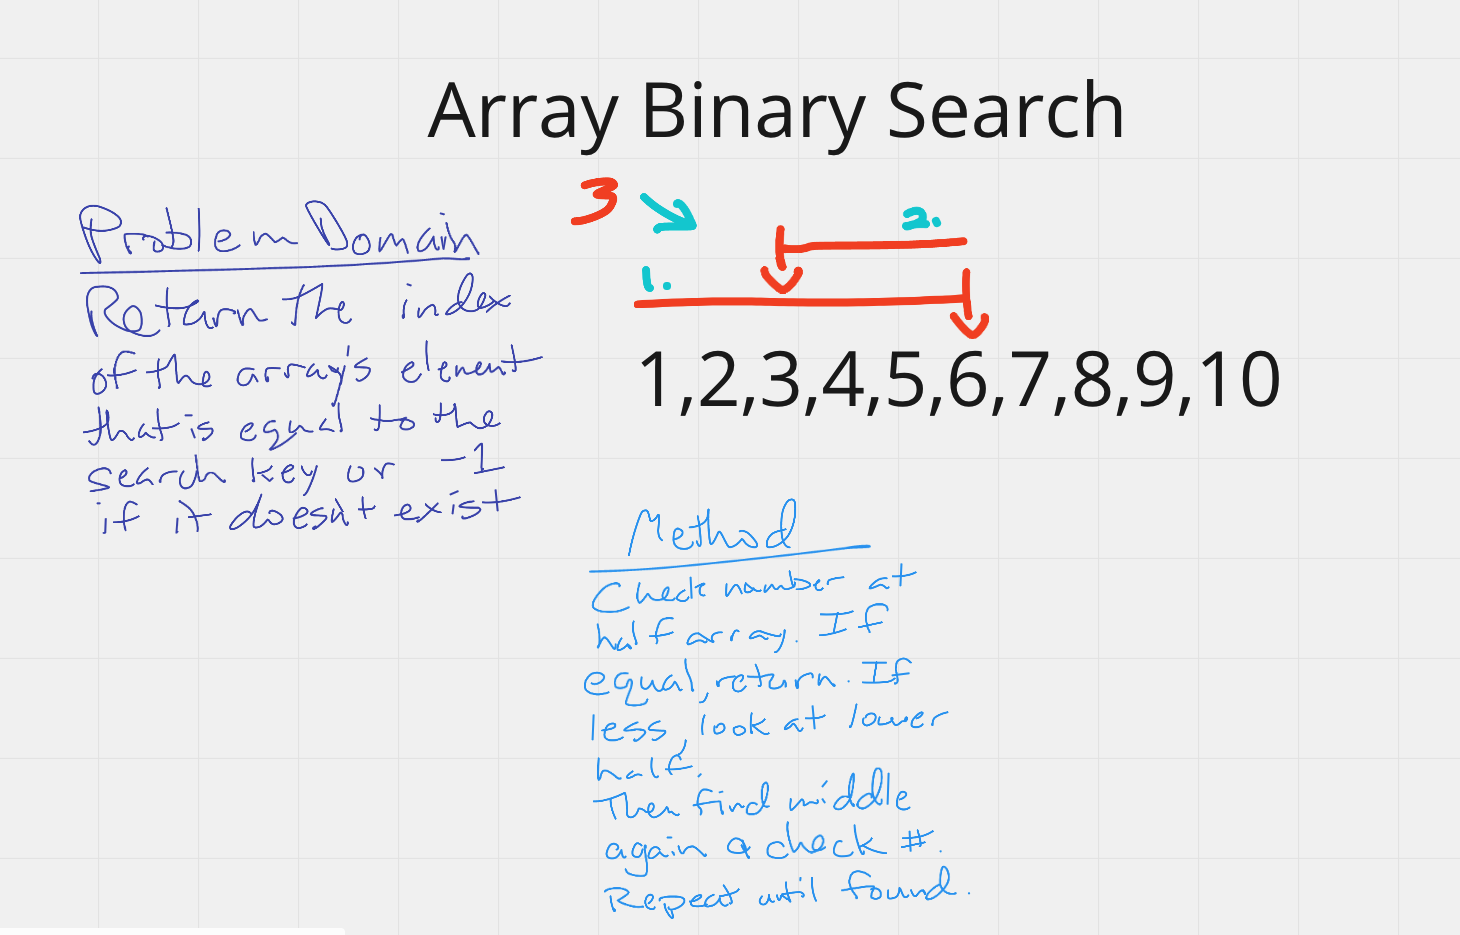 Array Binary Search
Problem Domain
Return the index
of the array's element
that is equal to the
search key or -1
if it doesn't exist
3
2.
1.
1,2,3,4,5,6,7,8,9,10
Method
Check number at
half array. If
equal, return. If
less, look at lower
half.
Then find middle
again & check #.
Repeat until found.